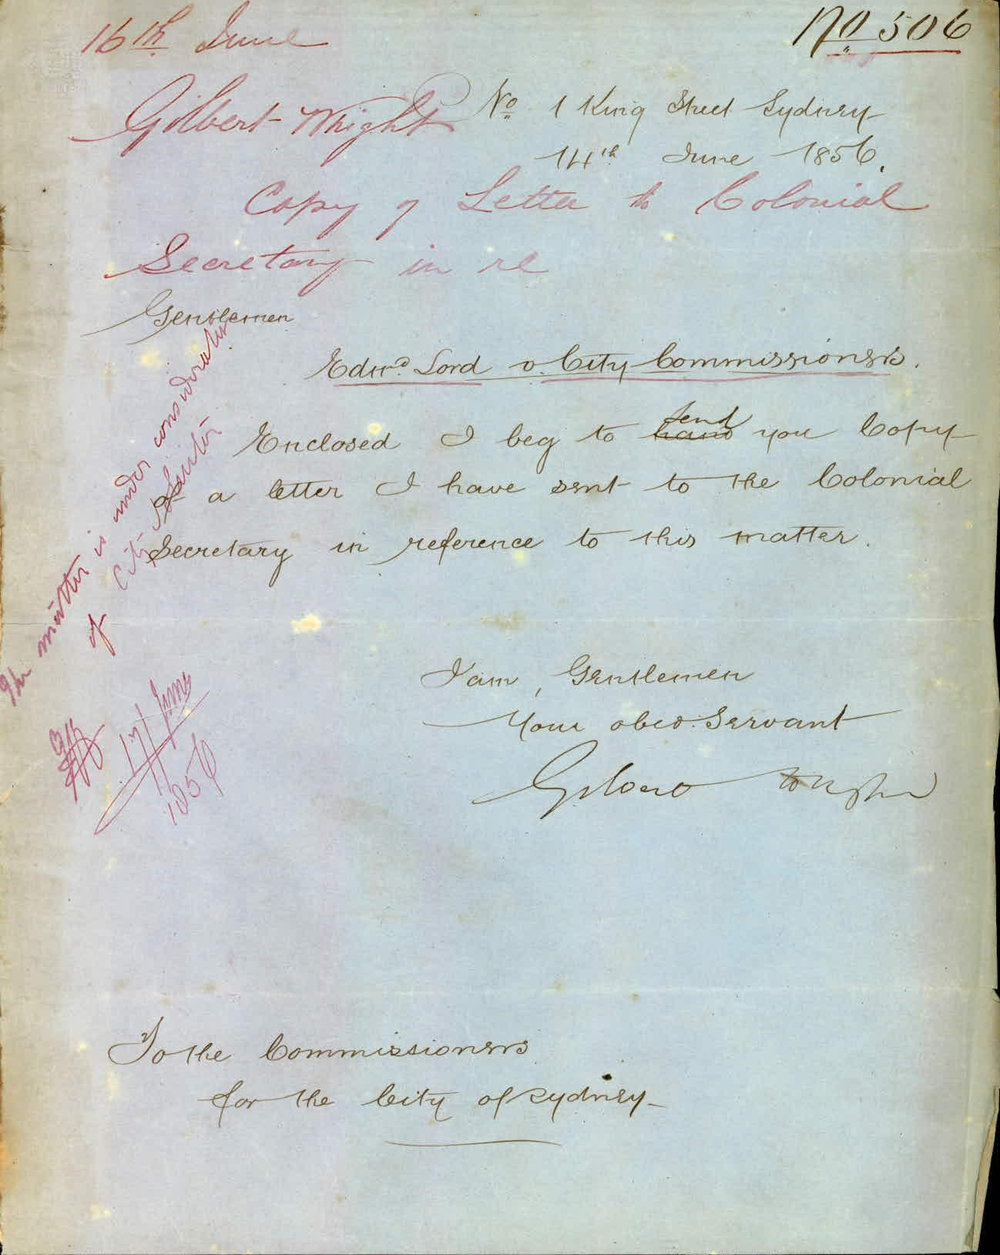 16th June
No 506
Gilbert Wright
No. 1 King Street Sydney
14th June 1856.
Copy of Letter to Colonial
Secretary in re
Gentlemen
Edwd Lord v. City Commissioners.
Enclosed I beg to hand send you Copy
of a letter I have sent to the Colonial
Secretary in reference to this matter.
I am, Gentlemen
Your obed. Servant
Gilbert Wright
The matter is under consideration
of City Solicitor
17 June
1856
To the Commissioners
for the City of Sydney